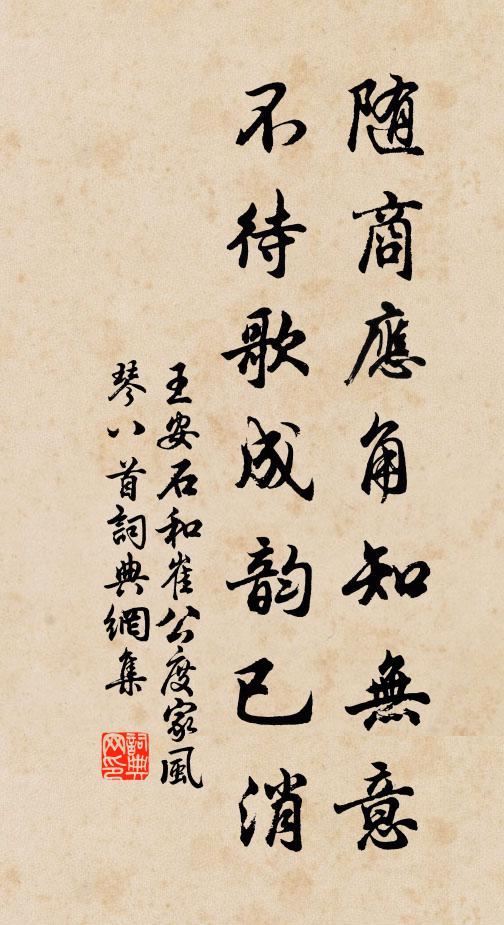 随商應角知無意
不待歌成韵已消
王安石和崔公度家風
琴八首詞典網集
詞典
网印